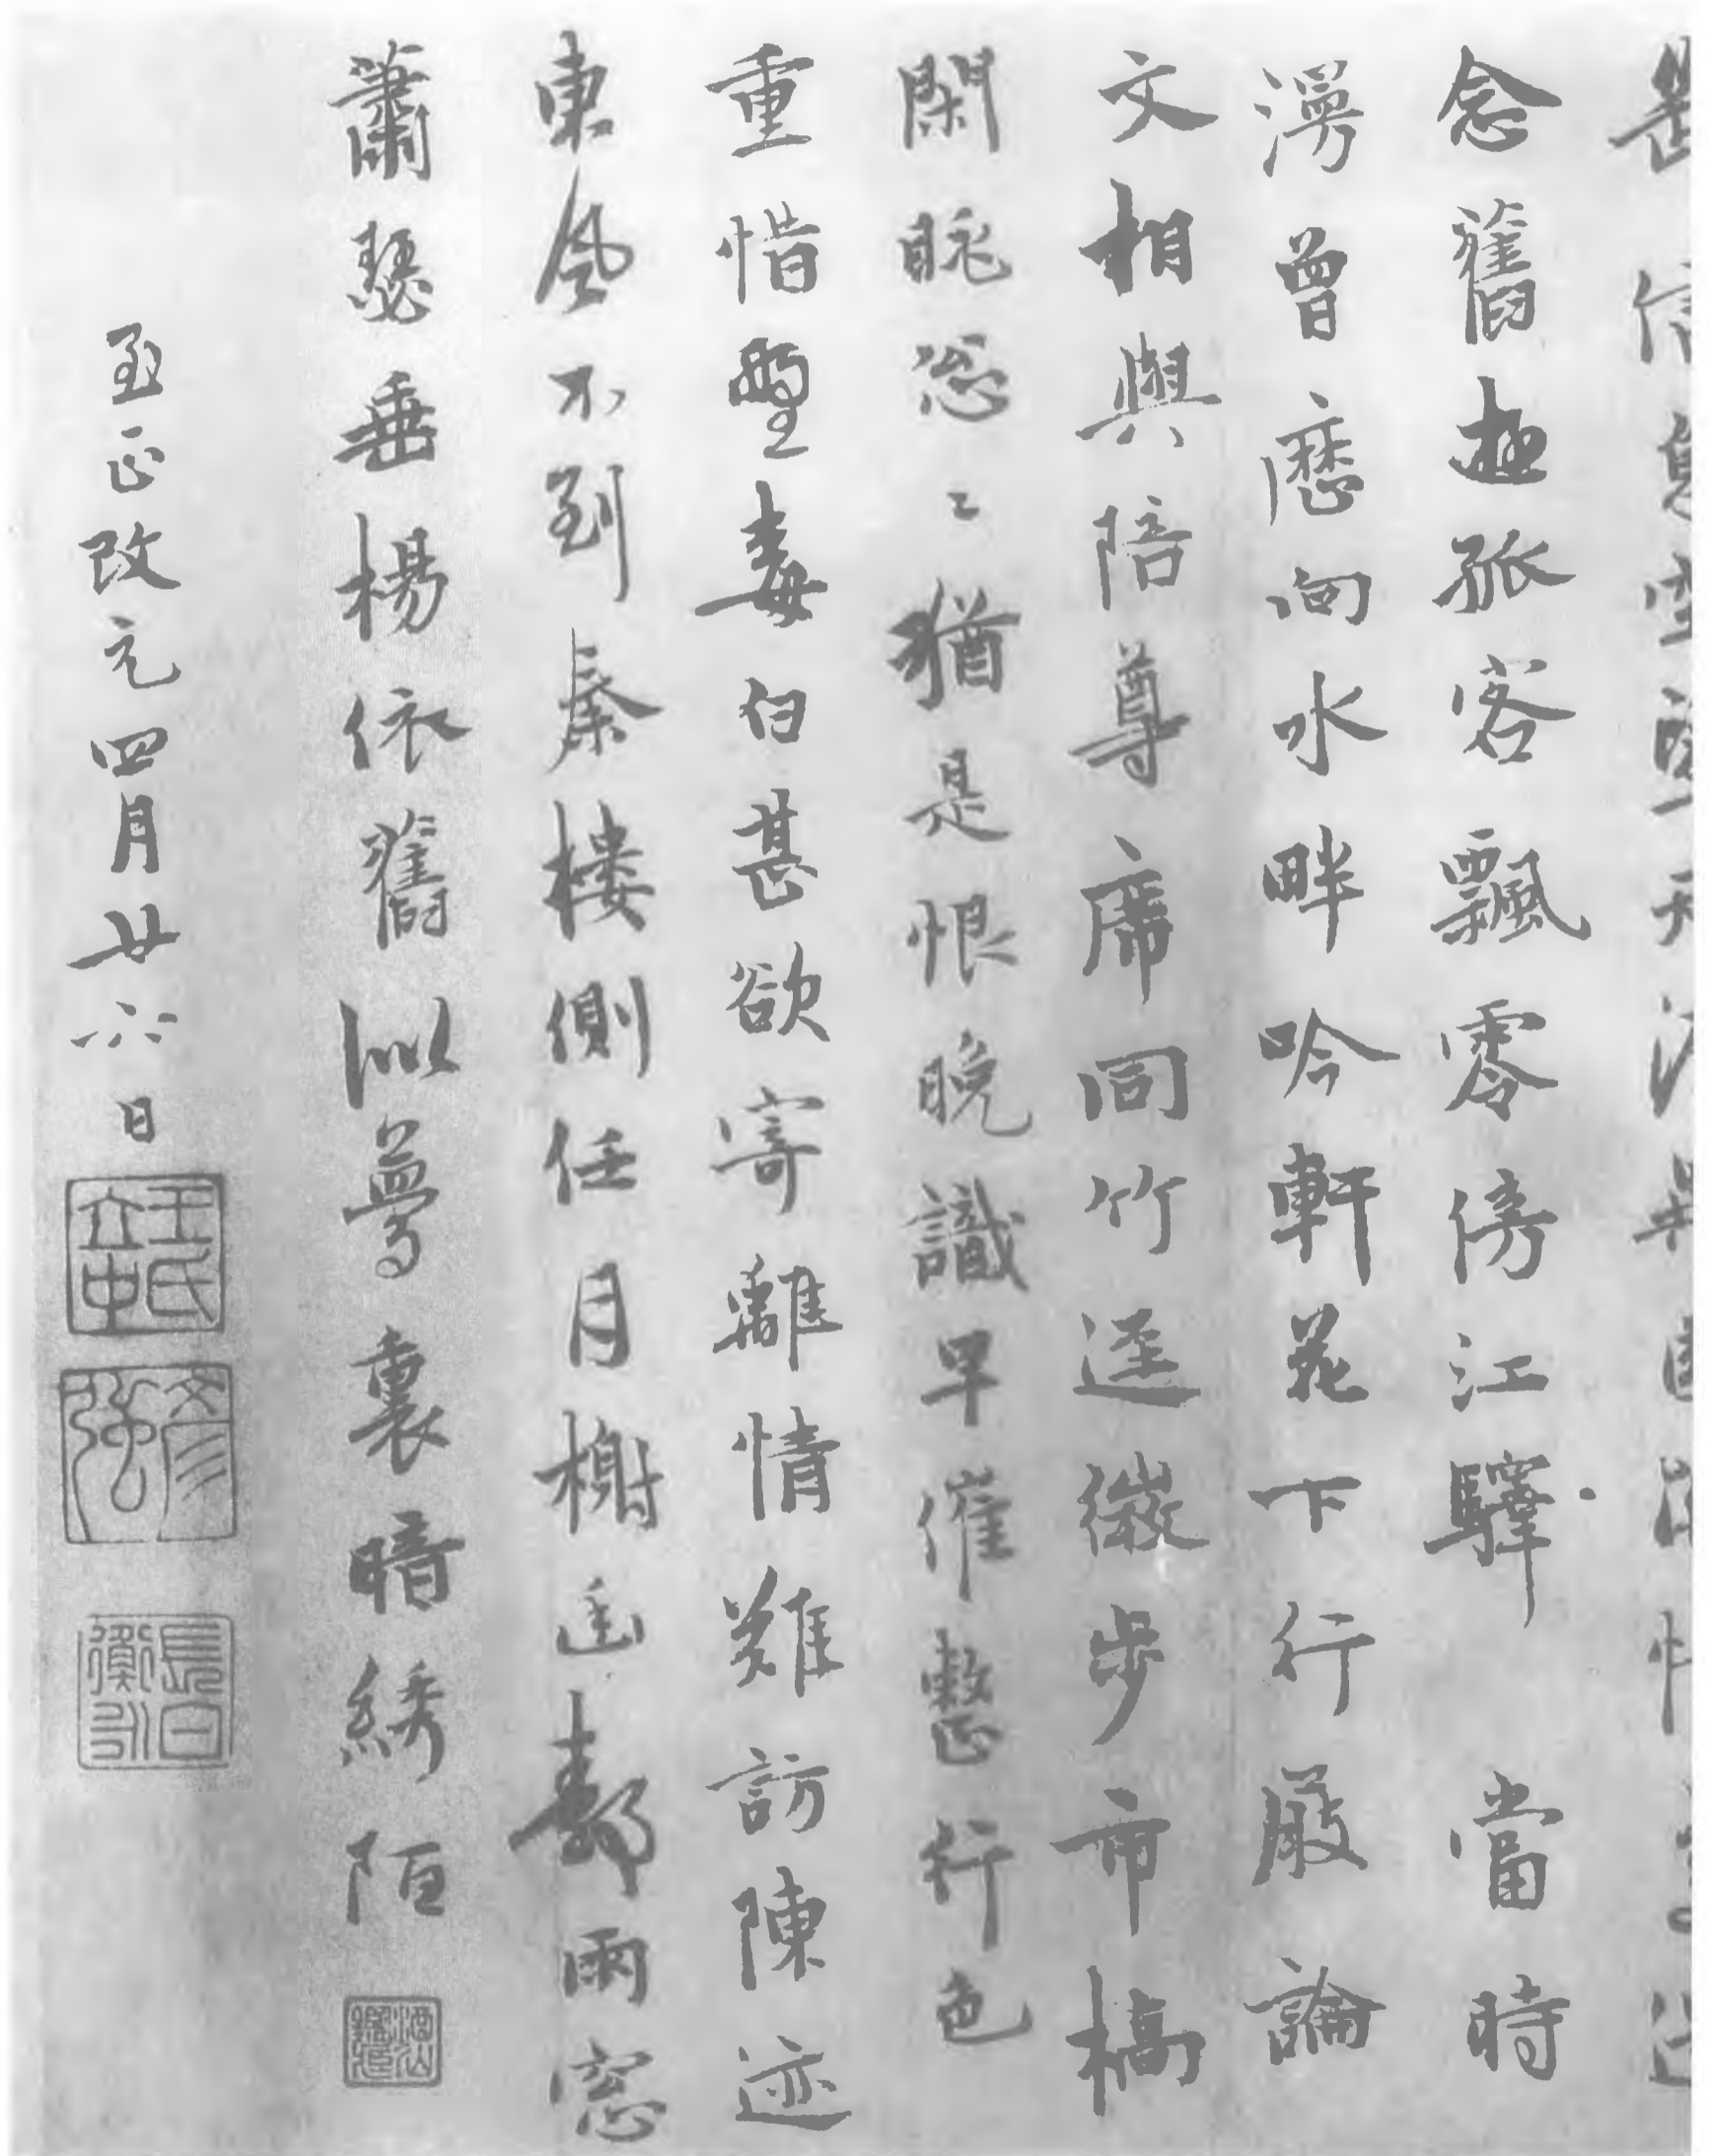 信息空
念舊遊孤客飄零傍江驛當時
漫曾歷向水畔吟軒花下行厨論
文相與陪尊席同竹逕微步市橋
閑眺怱〻猶是恨晚識早催整行色
重惜墅春何甚欲寄離情難訪陳迹
東風不到秦樓側任月榭遙鄰雨窓
蕭瑟垂楊依舊似夢裏暗綉陌
至正改元四月廿六日
王氏立中
彦強